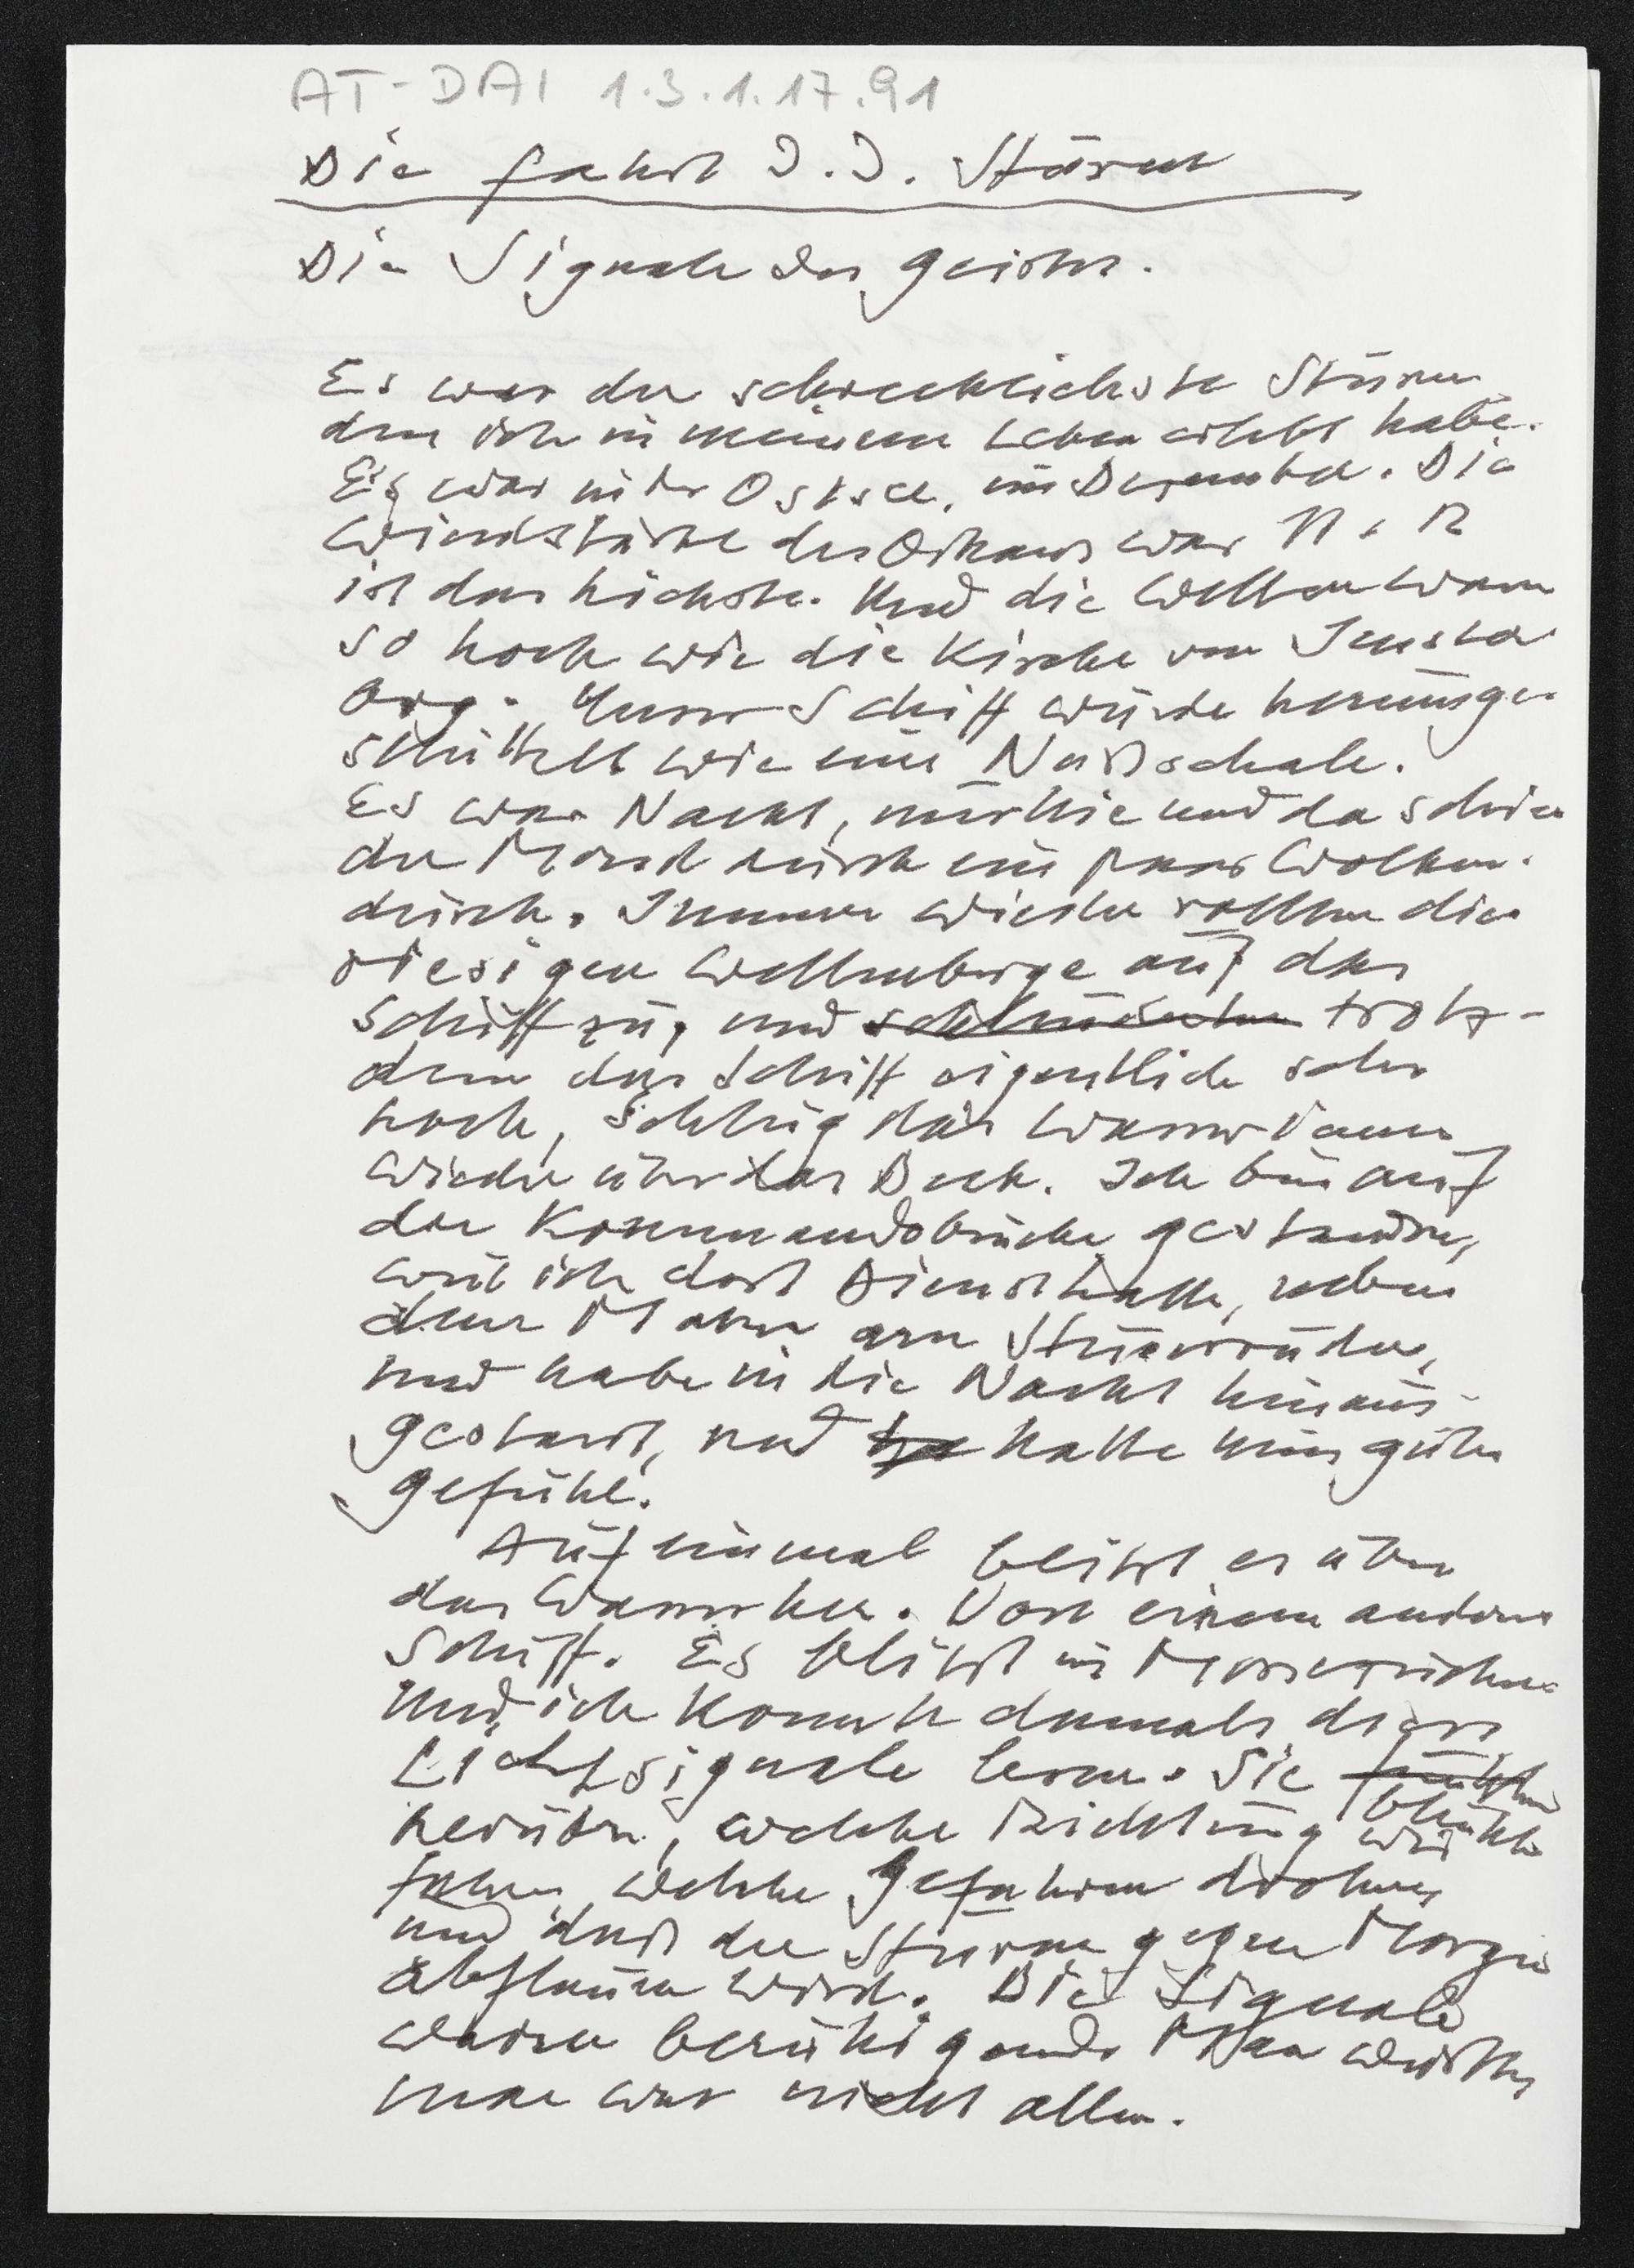 AT-DAI 1.3.1.17.91
Die Fahrt I. I. Sturm
Die Signale des Geistes.
Es war der schrecklichste Sturm
den ich in meinem Leben erlebt habe.
Es war in der Ostsee, im Dezember. Die
Windstärke des Orkans war 11, 12
ist das höchste. Und die Wellen waren
so hoch wie die Kirche von
Unser Schiff wurde herumge-
schüttelt wie eine Nußschale.
Es war Nacht, nur hie und da schien
der Mond durch ein paar Wolken
durch. Immer wieder rollten die
riesigen Wellenberge auf das
Schiff zu, und trotz-
dem das Schiff eigentlich sehr
hoch, schlug das Wasser immer
wieder über das Deck. Ich bin auf
der Kommandobrücke gestanden,
weil ich dort Dienst hatte, neben
dem Mann am Steuerruder,
und habe in die Nacht hinaus-
gestarrt, und hatte kein gutes
Gefühl.
Auf einmal blitzt es über
das Wasser her. Von einem andern
Schiff. Es blitzt in Morsezeichen
Und ich konnte damals diese
Lichtsignale lesen. Sie
blitzten
herüber, welche Richtung wir
fahren, welche Gefahren drohen,
und daß der Sturm gegen Morgen
abflauen wird. Die Signale
waren beruhigend. Man wußte,
man war nicht allein.